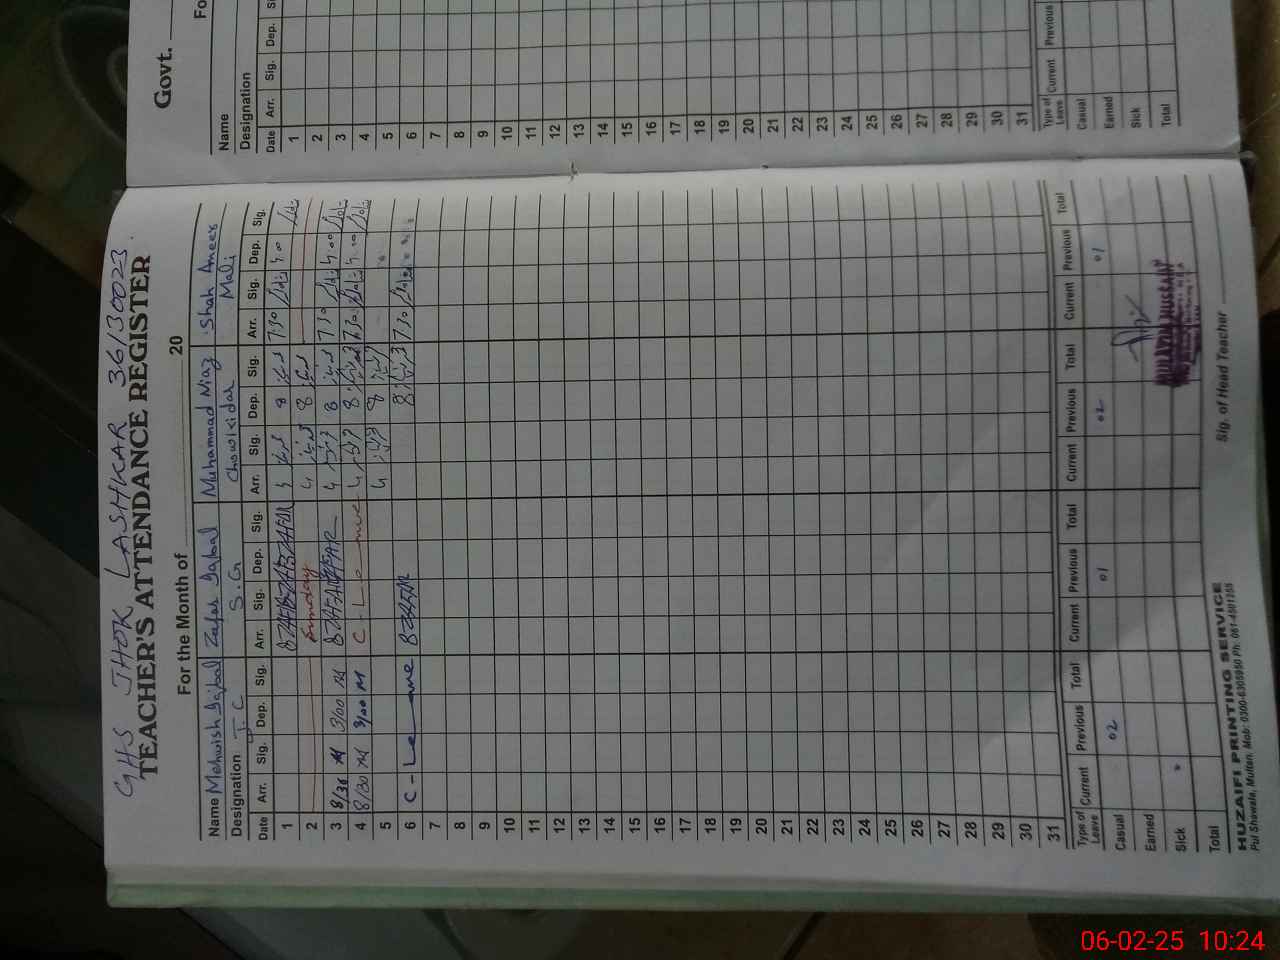 GHS JHOK LASHKAR 36130023
TEACHER'S ATTENDANCE REGISTER
For the Month of 20
Name Mehwish Iqbal Zafar Iqbal Muhammad Niaz Shah Ameer
Designation T.C S.G Chowkidar Mali
Date Arr. Sig. Dep. Sig. Arr. Sig. Dep. Sig. Arr. Sig. Dep. Sig. Arr. Sig. Dep. Sig.
1 8 ZAFAR ZAFAR 4 8 7:30 4:00
2 Sunday 4 8
3 8/30 M 3/00 M 8 ZAFAR ZAFAR 4 8 7:30 4:00
4 8/30 M 3/00 M C-Leave 4 8 7:30 4:00
5 4 8
6 C-Leave 8 ZAFAR 8 7:30
7
8
9
10
11
12
13
14
15
16
17
18
19
20
21
22
23
24
25
26
27
28
29
30
31
Type of Leave Current Previous Total Current Previous Total Current Previous Total Current Previous Total
Casual 02 01 02 01
Earned
Sick
Total
Sig. of Head Teacher
HUZAIFI PRINTING SERVICE
Pul Shawala, Multan. Mob: 0300-6305950 Ph: 061-4501755
Govt.
Fo
Name
Designation
Date Arr. Sig. Dep.
1
2
3
4
5
6
7
8
9
10
11
12
13
14
15
16
17
18
19
20
21
22
23
24
25
26
27
28
29
30
31
Type of Leave Current Previous
Casual
Earned
Sick
Total
06-02-25 10:24